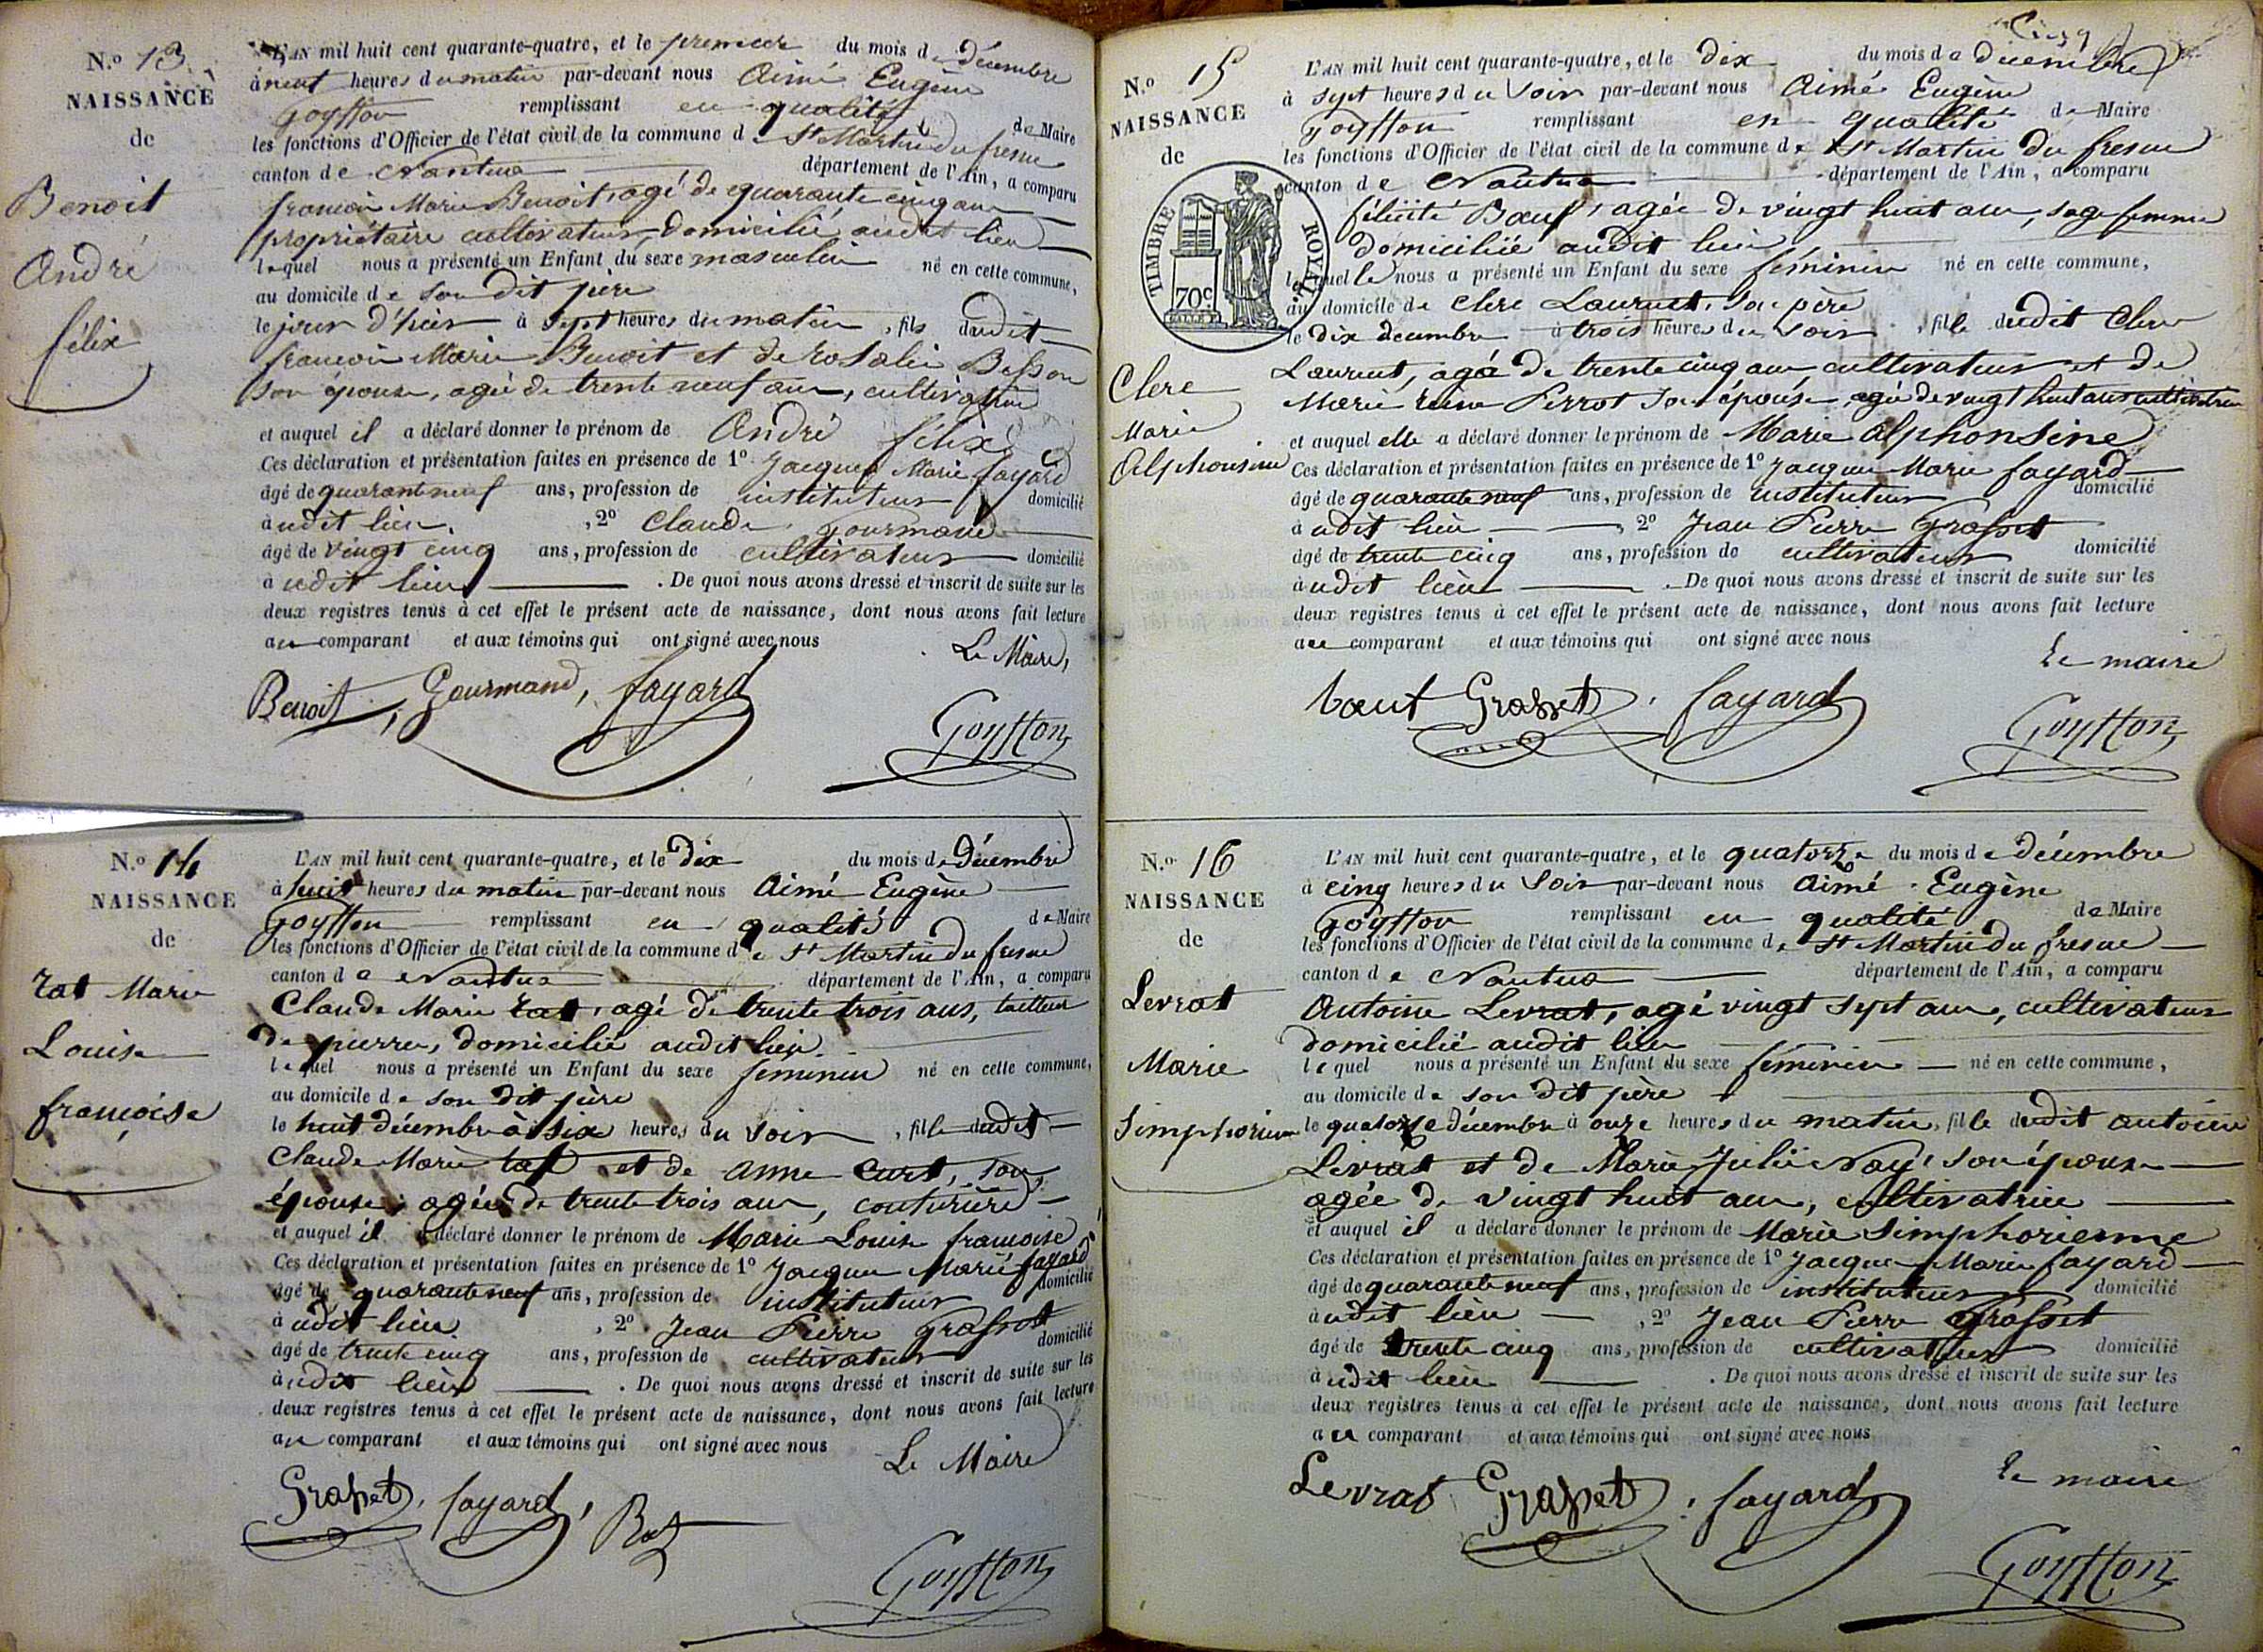 N.o 13
NAISSANCE
de
Benoit
André
félix
L'AN mil huit cent quarante-quatre, et le premier du mois de décembre
à neuf heures du matin par-devant nous Aimé Eugène
Goyffon remplissant en qualité de Maire
les fonctions d'Officier de l'état civil de la commune de St Martin du fresne
canton de Nantua département de l'Ain, a comparu
françois Marie Benoit, agé de quarante cinq ans
propriétaire cultivateur, domicilié audit lieu
lequel nous a présenté un Enfant du sexe masculin né en cette commune,
au domicile de son dit père
le jour d'hier à sept heures du matin, fils dudit
françois Marie Benoit et de rosalie Besson
son épouse, agée de trente neuf ans, cultivatrice
et auquel il a déclaré donner le prénom de André félix
Ces déclaration et présentation faites en présence de 1o Jacques Marie fayard
âgé de quarante neuf ans, profession de instituteur domicilié
à udit lieu, 2o Claude Gourmand
âgé de vingt cinq ans, profession de cultivateur domicilié
à udit lieu . De quoi nous avons dressé et inscrit de suite sur les
deux registres tenus à cet effet le présent acte de naissance, dont nous avons fait lecture
au comparant et aux témoins qui ont signé avec nous
Le Maire,
Benoit, Gourmand, fayard
Goyffon
N.o 14
NAISSANCE
de
rat Marie
Louise
françoise
L'AN mil huit cent quarante-quatre, et le dix du mois de Décembre
à huit heures du matin par-devant nous Aimé Eugène
Goyffon remplissant en qualité de Maire
les fonctions d'Officier de l'état civil de la commune de St Martin du fresne
canton de Nantua département de l'Ain, a comparu
Claude Marie rat, agé de trente trois ans, tailleur
de pierres, domicilié audit lieu
lequel nous a présenté un Enfant du sexe feminin né en cette commune,
au domicile de son dit père
le huit décembre à six heures du soir, fille dudit
Claude Marie rat et de anne Curt, son
épouse, agée de trente trois ans, couturière
et auquel il a déclaré donner le prénom de Marie Louise francoise
Ces déclaration et présentation faites en présence de 1o Jacques Marie fayard
âgé de quarante neuf ans, profession de instituteur domicilié
à udit lieu, 2o Jean Pierre Grasset
âgé de trente cinq ans, profession de cultivateur domicilié
à udit lieu . De quoi nous avons dressé et inscrit de suite sur les
deux registres tenus à cet effet le présent acte de naissance, dont nous avons fait lecture
au comparant et aux témoins qui ont signé avec nous
Le Maire
Grasset, fayard, Rat
Goyffon
Cinq
N.o 15
NAISSANCE
de
TIMBRE ROYAL
70c
Clere
Marie
Alphonsine
L'AN mil huit cent quarante-quatre, et le dix du mois de décembre
à sept heures du soir par-devant nous Aimé Eugène
Goyffon remplissant en qualité de Maire
les fonctions d'Officier de l'état civil de la commune de St Martin du fresne
canton de Nantua département de l'Ain, a comparu
félicité Bœuf, agée de vingt huit ans, sage femme
domiciliée audit lieu
lequelle nous a présenté un Enfant du sexe féminin né en cette commune,
au domicile de Clere Laurent, son père
le dix décembre à trois heures du soir, fille dudit Clere
Laurent, agé de trente cinq ans, cultivateur et de
Marie reine Perrot son épouse, agée de vingt huit ans cultivatrice
et auquel elle a déclaré donner le prénom de Marie Alphonsine
Ces déclaration et présentation faites en présence de 1o Jacques Marie fayard
âgé de quarante neuf ans, profession de instituteur domicilié
à udit lieu, 2o Jean Pierre Grasset
âgé de trente cinq ans, profession de cultivateur domicilié
à udit lieu . De quoi nous avons dressé et inscrit de suite sur les
deux registres tenus à cet effet le présent acte de naissance, dont nous avons fait lecture
au comparant et aux témoins qui ont signé avec nous
le maire
bœuf Grasset, fayard
Goyffon
N.o 16
NAISSANCE
de
Levrat
Marie
Simphorienne
L'AN mil huit cent quarante-quatre, et le quatorze du mois de décembre
à cinq heures du soir par-devant nous Aimé Eugène
Goyffon remplissant en qualité de Maire
les fonctions d'Officier de l'état civil de la commune de St Martin du fresne
canton de Nantua département de l'Ain, a comparu
Antoine Levrat, agé vingt sept ans, cultivateur
domicilié audit lieu
lequel nous a présenté un Enfant du sexe féminin né en cette commune,
au domicile de son dit père
le quatorze décembre à onze heures du matin, fille dudit antoine
Levrat et de Marie Julie Nay, son épouse
agée de vingt huit ans, cultivatrice
et auquel il a déclaré donner le prénom de Marie Simphorienne
Ces déclaration et présentation faites en présence de 1o Jacques Marie fayard
âgé de quarante neuf ans, profession de instituteur domicilié
à udit lieu, 2o Jean Pierre Grasset
âgé de trente cinq ans, profession de cultivateur domicilié
à udit lieu . De quoi nous avons dressé et inscrit de suite sur les
deux registres tenus à cet effet le présent acte de naissance, dont nous avons fait lecture
au comparant et aux témoins qui ont signé avec nous
le maire
Levrat Grasset, fayard
Goyffon